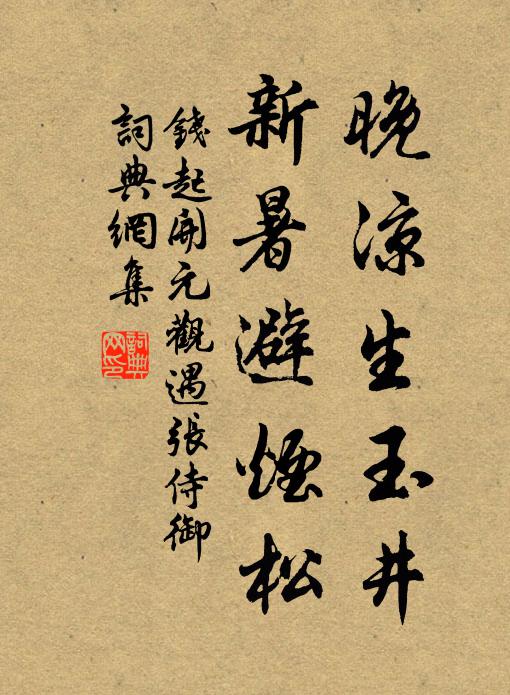 晚涼生玉井
新暑避煙松
錢起開元觀遇張侍御
詞典網集
詞典
网印